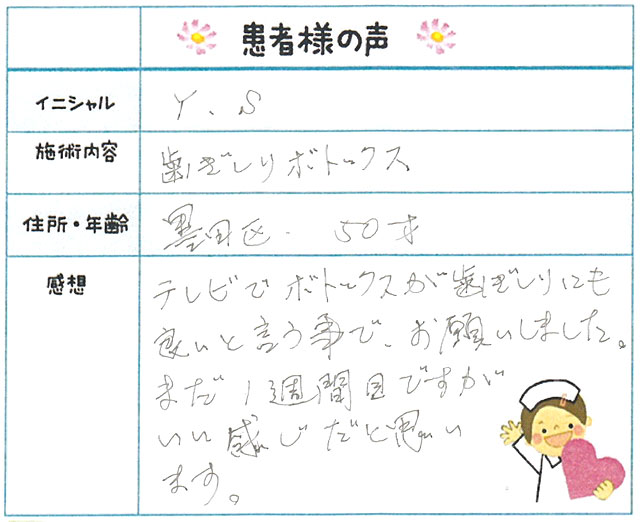 患者様の声
イニシャル Y.S
施術内容 歯ぎしりボトックス
住所・年齢 墨田区. 50才
感想 テレビでボトックスが歯ぎしりにも
良いと言う事で、お願いしました。
まだ1週間目ですが
いい感じだと思い
ます。